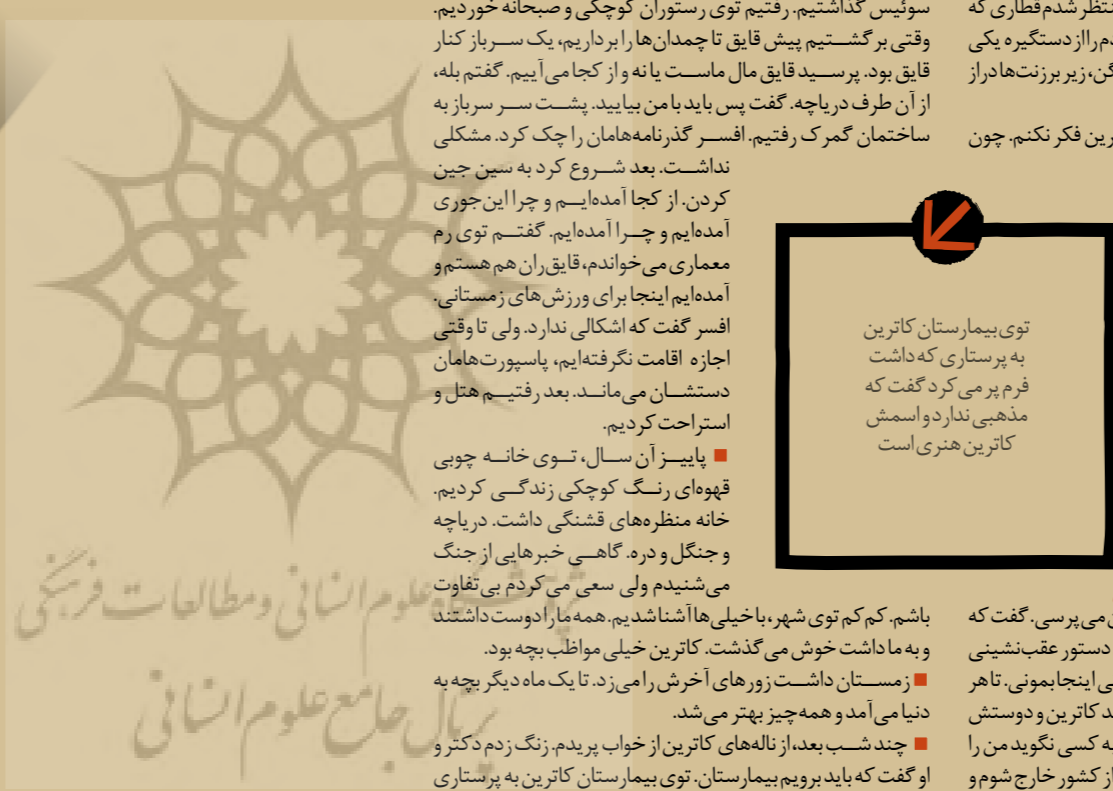 نتظر شدم قطاری که
دم را از دستگیره یکی
گن، زیر برزنت‌ها دراز
رین فکر نکنم. چون
توی بیمارستان کاترین
به پرستاری که داشت
فرم پر می‌کرد گفت که
مذهبی ندارد و اسمش
کاترین هنری است
ن می‌پرسی. گفت که
دستور عقب‌نشینی
ی اینجا بمونی. تا هر
ند کاترین و دوستش
به کسی نگوید من را
از کشور خارج شوم و
سوئیس گذاشتیم. رفتیم توی رستوران کوچکی و صبحانه خوردیم.
وقتی برگشتیم پیش قایق تا چمدان‌ها را برداریم، یک سرباز کنار
قایق بود. پرسید قایق مال ماست یا نه و از کجا می‌آییم. گفتم بله،
از آن طرف دریاچه. گفت پس باید با من بیایید. پشت سر سرباز به
ساختمان گمرک رفتیم. افسر گذرنامه‌هامان را چک کرد. مشکلی
نداشت. بعد شروع کرد به سین جین
کردن. از کجا آمده‌ایم و چرا این‌جوری
آمده‌ایم و چرا آمده‌ایم. گفتم توی رم
معماری می‌خواندم، قایق‌ران هم هستم و
آمده‌ایم اینجا برای ورزش‌های زمستانی.
افسر گفت که اشکالی ندارد. ولی تا وقتی
اجازه اقامت نگرفته‌ایم، پاسپورت‌هامان
دستشان می‌ماند. بعد رفتیم هتل و
استراحت کردیم.
■ پاییز آن سال، توی خانه چوبی
قهوه‌ای رنگ کوچکی زندگی کردیم.
خانه منظره‌های قشنگی داشت. دریاچه
و جنگل و دره. گاهی خبرهایی از جنگ
می‌شنیدم ولی سعی می‌کردم بی‌تفاوت
باشم. کم کم توی شهر، با خیلی‌ها آشنا شدیم. همه ما را دوست داشتند
و به ما داشت خوش می‌گذشت. کاترین خیلی مواظب بچه بود.
■ زمستان داشت زورهای آخرش را می‌زد. تا یک ماه دیگر بچه به
دنیا می‌آمد و همه‌چیز بهتر می‌شد.
■ چند شب بعد، از ناله‌های کاترین از خواب پریدم. زنگ زدم دکتر و
او گفت که باید برویم بیمارستان. توی بیمارستان کاترین به پرستاری
پژوهشگاه علوم انسانی و مطالعات فرهنگی
پرتال جامع علوم انسانی